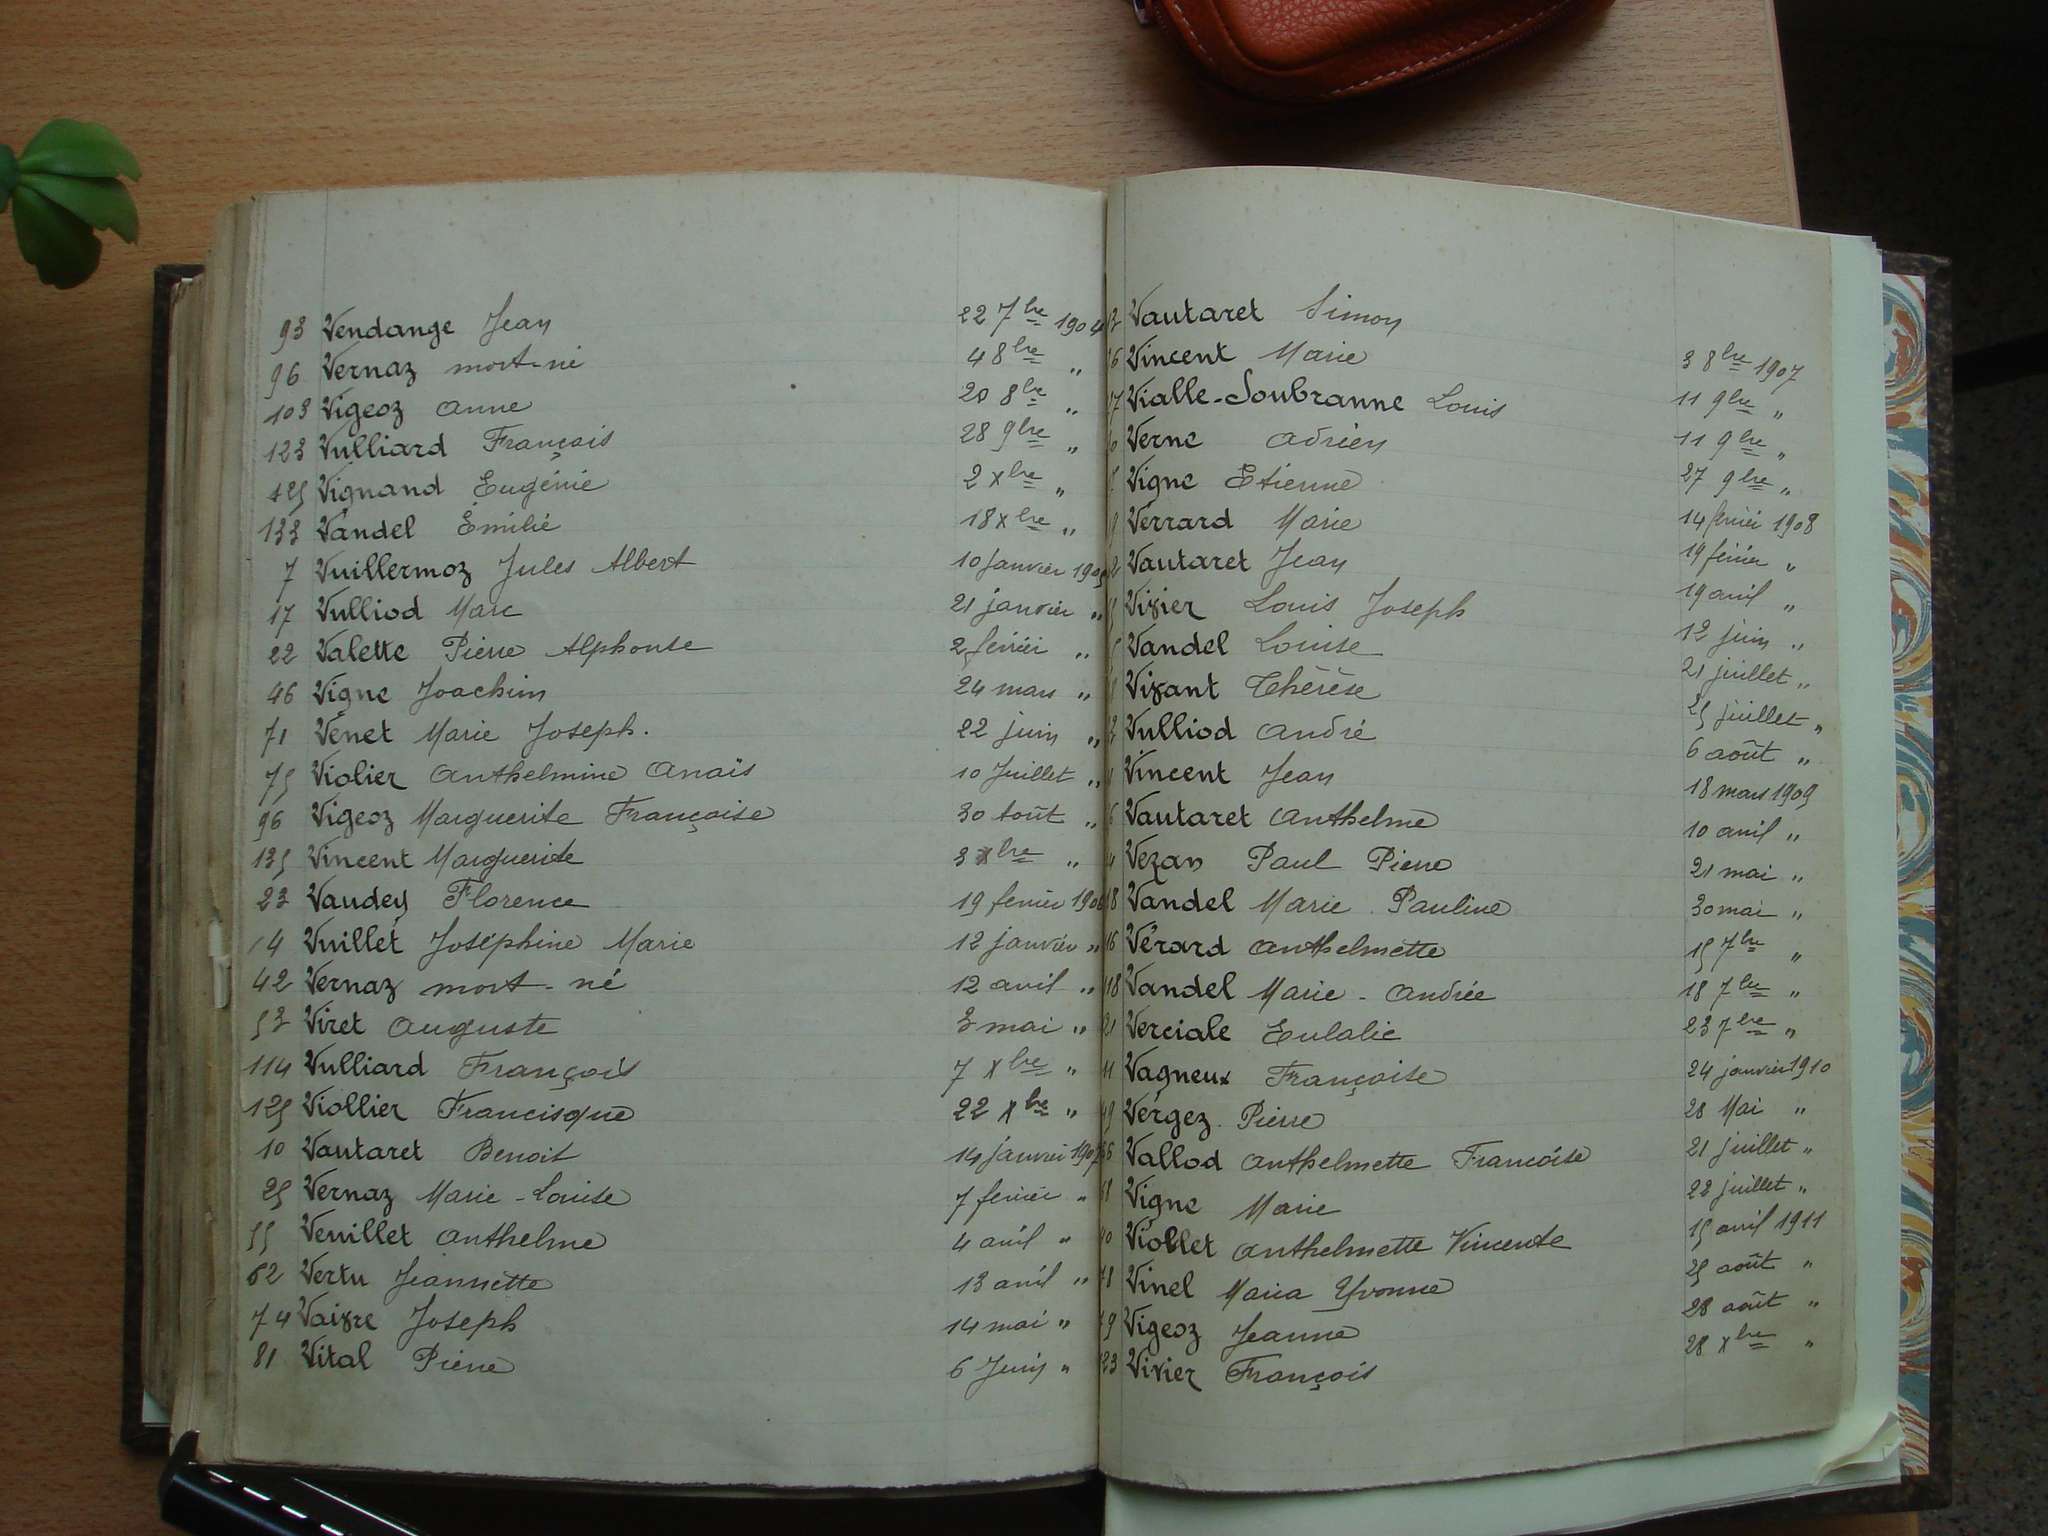 93 Vendange Jean 22 7bre 1904
96 Vernaz mort-né 4 8bre "
103 Vigeoz Anne 20 8bre "
123 Vulliard François 28 9bre "
125 Vignand Eugénie 2 Xbre "
133 Vandel Émilie 18 Xbre "
7 Vuillermoz Jules Albert 10 Janvier 1905
17 Vulliod Marc 21 janvier "
22 Valette Pierre Alphonse 25 février "
46 Vigne Joachim 24 mars "
71 Venet Marie Joseph. 22 juin "
75 Violier Anthelmine Anaïs 10 Juillet "
96 Vigeoz Marguerite Françoise 30 août "
135 Vincent Marguerite 3 Xbre "
23 Vaudey Florence 19 fevrier 1906
14 Vuillet Joséphine Marie 12 janvier "
42 Vernaz mort-né 12 avril "
53 Viret Auguste 3 mai "
114 Vulliard François 7 Xbre "
125 Viollier Francisque 22 Xbre "
10 Vautaret Benoit 14 janvier 1907
25 Vernaz Marie-Louise 7 fevrier "
55 Veuillet Anthelme 4 avril "
62 Vertu Jeannette 13 avril "
74 Vaivre Joseph 14 mai "
81 Vital Pierre 6 Juin "
Vautaret Simon 3 8bre 1907
Vincent Marie 11 9bre "
Vialle-Soubranne Louis 11 9bre "
Verne Adrien 27 9bre "
Vigne Etienne 14 fevrier 1908
Verrard Marie 19 février "
Vautaret Jean 19 avril "
Vivier Louis Joseph 12 juin "
Vandel Louise 21 juillet "
Vivant Thérèse 25 juillet "
Vulliod André 6 août "
Vincent Jean 18 mars 1909
Vautaret Anthelme 10 avril "
Vezan Paul Pierre 21 mai "
Vandel Marie Pauline 30 mai "
Vérard Anthelmette 15 7bre "
Vandel Marie-Andrée 18 7bre "
Verciale Eulalie 23 7bre "
Vagneux Françoise 24 janvier 1910
Vergez Pierre 28 Mai "
Vallod Anthelmette Francoise 21 juillet "
Vigne Marie 22 juillet "
Viollet Anthelmette Vincente 15 avril 1911
Vinel Maria Yvonne 25 août "
Vigeoz Jeanne 28 août "
Vivier François 28 Xbre "